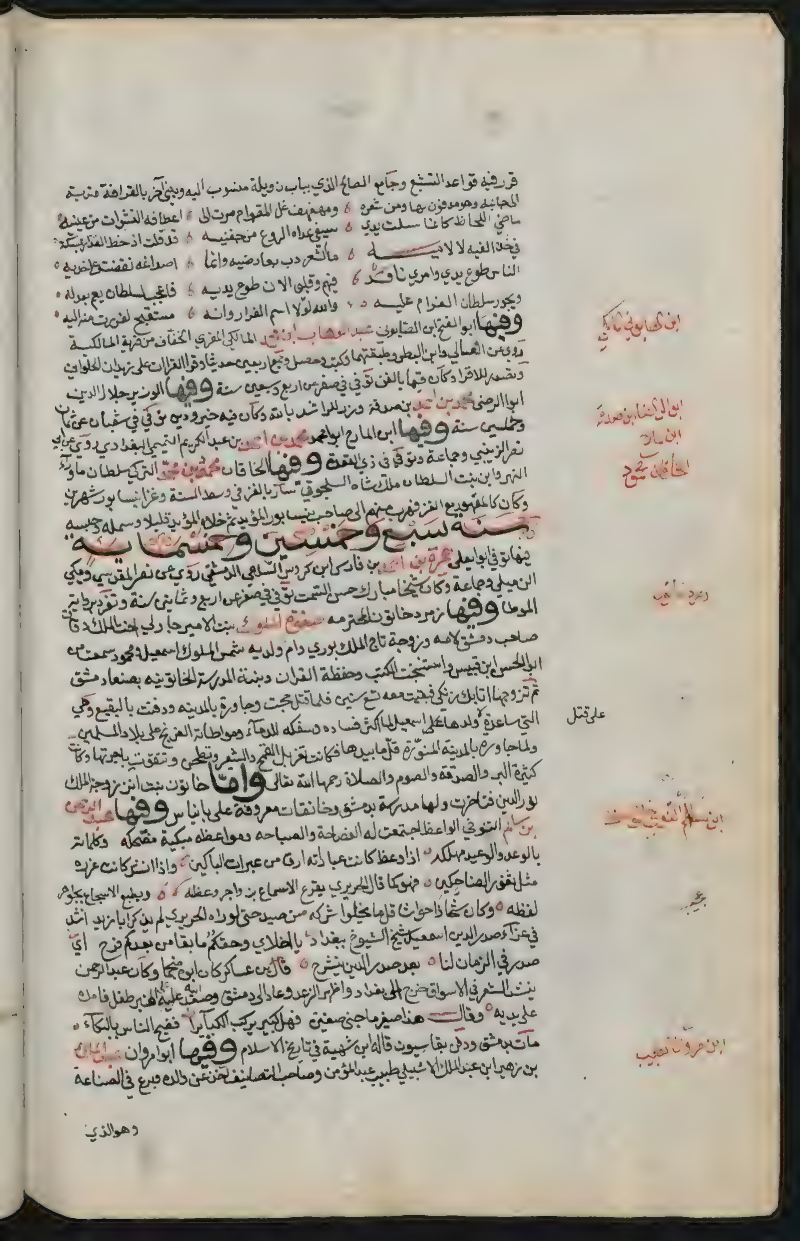 قرر فيه قواعد التشيع وجامع الصالح الذي بباب زويلة منسوب اليه وبنى آخر بالقرافة وتربة
المجانبه وهو مدفون بها ومن شعره ومهفهف ثمل القوام سرت الى اعطافه النشوات من عينيه
ماضي اللحاظ كانما سلت يدي سيفي غداة الروع من جفنيه قد قلت اذ خط العذار بمسكة
في خده الفيه لا لاميه ما الشعر دب بعارضيه وانما اصداغه نفضت على خديه
الناس طوع يدي وامري نافذ فيهم وقلبي الان طوع يديه فاعجب لسلطان يعم بعدله
ويجور سلطان الغرام عليه والله لولا اسم الفرار وانه مستقبح لفررت منه اليه
وفيها ابو الفتح ابن الصابوني عبد الوهاب ابن محمد المالكي المقري الخفاف من قرية المالكية
روى عن النعالي وابن البطر وطبقتهما وكتب وحصل وجمع اربعين حديثا وقرا القران على الحلواني
وتصدر للاقرا وكان قيما بالفن توفي في صفر عن اربع وسبعين سنة وفيها الوزير جلال الدين
ابو الرضى محمد بن احمد بن صدقة وزر للراشد بالله وكان فيه خير ودين توفي في شعبان عن ثمان
وخمسين سنة وفيها ابن المادح ابو محمد محمد بن احمد بن عبد الكريم التميمي البغدادي روى عن ابي
نصر الزينبي وجماعة وتوفي في ذي القعدة وفيها الخاقان محمود بن محمد التركي سلطان ماورآء
النهر وابن بنت السلطان ملكشاه السلجوقي سار بالغز في وسط السنة وغزا نيسابور شهرين
وكان كالمقهور مع الغز فهرب منهم الى صاحب نيسابور المؤيد ثم خلاه المؤيد قليلا وسمله وحبسه
سنة سبع وخمسين وخمسماية
فيها توفي ابو يعلى حمزة بن احمد بن فارس ابن كروس السلمي الدمشقي روى عن نصر المقدسي ومكي
الرميلي وجماعة وكان شيخا مباركا حسن السمت توفي في صفر عن اربع وثمانين سنة وتفرد برواية
الموطا وفيها زمرد خاتون المحترمه صفوة الملوك بنت الامير جاولي اخت الملك دقاق
صاحب دمشق لامه وزوجة تاج الملك بوري وام ولديه شمس الملوك اسمعيل ومحمود سمعت من
ابي الحسن ابن قبيس واستنسخت الكتب وحفظة القران وبنت المدرسة الخاتونيه بصنعاء دمشق
ثم تزوجها اتابك زنكي فبقيت معه تسع سنين فلما قتل حجت وجاورة بالمدينه ودفنت بالبقيع وهي
التي ساعدة ولدها على اسمعيل لما كثر فساده وسفكه للدماء ومواطاة الفرنج على بلاد المسلمين
ولما جاورة بالمدينة المنورة قل ما بيدها فكانت تغربل القمح والشعير وتطحن وتتقوت باجرتها وكانت
كثيرة البر والصدقة والصوم والصلاة رحمها الله تعالى واما خاتون بنت انر زوجة الملك
نور الدين فتاخرت ولها مدرسة بدمشق وخانقات معروفة على بانياس وفيها عبد الرحمن
بن سالم التنوخي الواعظ اجتمعت له الفصاحة والصباحه ومواعظه مبكية مضحكه وكلماته
بالوعد والوعيد مهلكه اذا وعظ كانت عباراته ارق من عبرات الباكين واذا انشد كانت غرره
مثل ثغور الضاحكين فهو كما قال الحريري يقرع الاسماع بزواجر وعظه ويطبع الاسجاع بجواهر
لفظه وكان شحاذا حواث قل ما يخلوا شركه من صيد حتى لو راه الحريري لم يذكر ابا زيد انشد
في عزآء صدر الدين اسمعيل شيخ الشيوخ ببغداد يا اخلاي وحقكم ما بقا من بعدكم فرح اي
صدر في الزمان لنا بعد صدر الدين ينشرح قال بن عساكر كان ابوه منجما وكان عبد الرحمن
ينشد الشعر في الاسواق خرج الى بغداد واظهر الزهد وعاد الى دمشق وصعد اليه المنبر طفل فامسك
على يديه وقال هذا صغير ما جنى صغيرة فهل كبير يركب الكبائرا فضج الناس بالبكآء
مات بدمشق ودفن بقاسيون قاله ابن شهبة في تاريخ الاسلام وفيها ابو مروان عبد الملك
بن زهر ابن عبد الملك الاشبيلي طبيب عبد المؤمن وصاحب التصانيف اخذ عن والده وبرع في الصناعة
وهو الذي
ابن الصابوني المالكي
ابو الرضا ابن صدقة
ابن مادح
الخاقان محمود
زمرد خاتون
على قتل
ابن سالم التنوخي
ابن مروان الطبيب